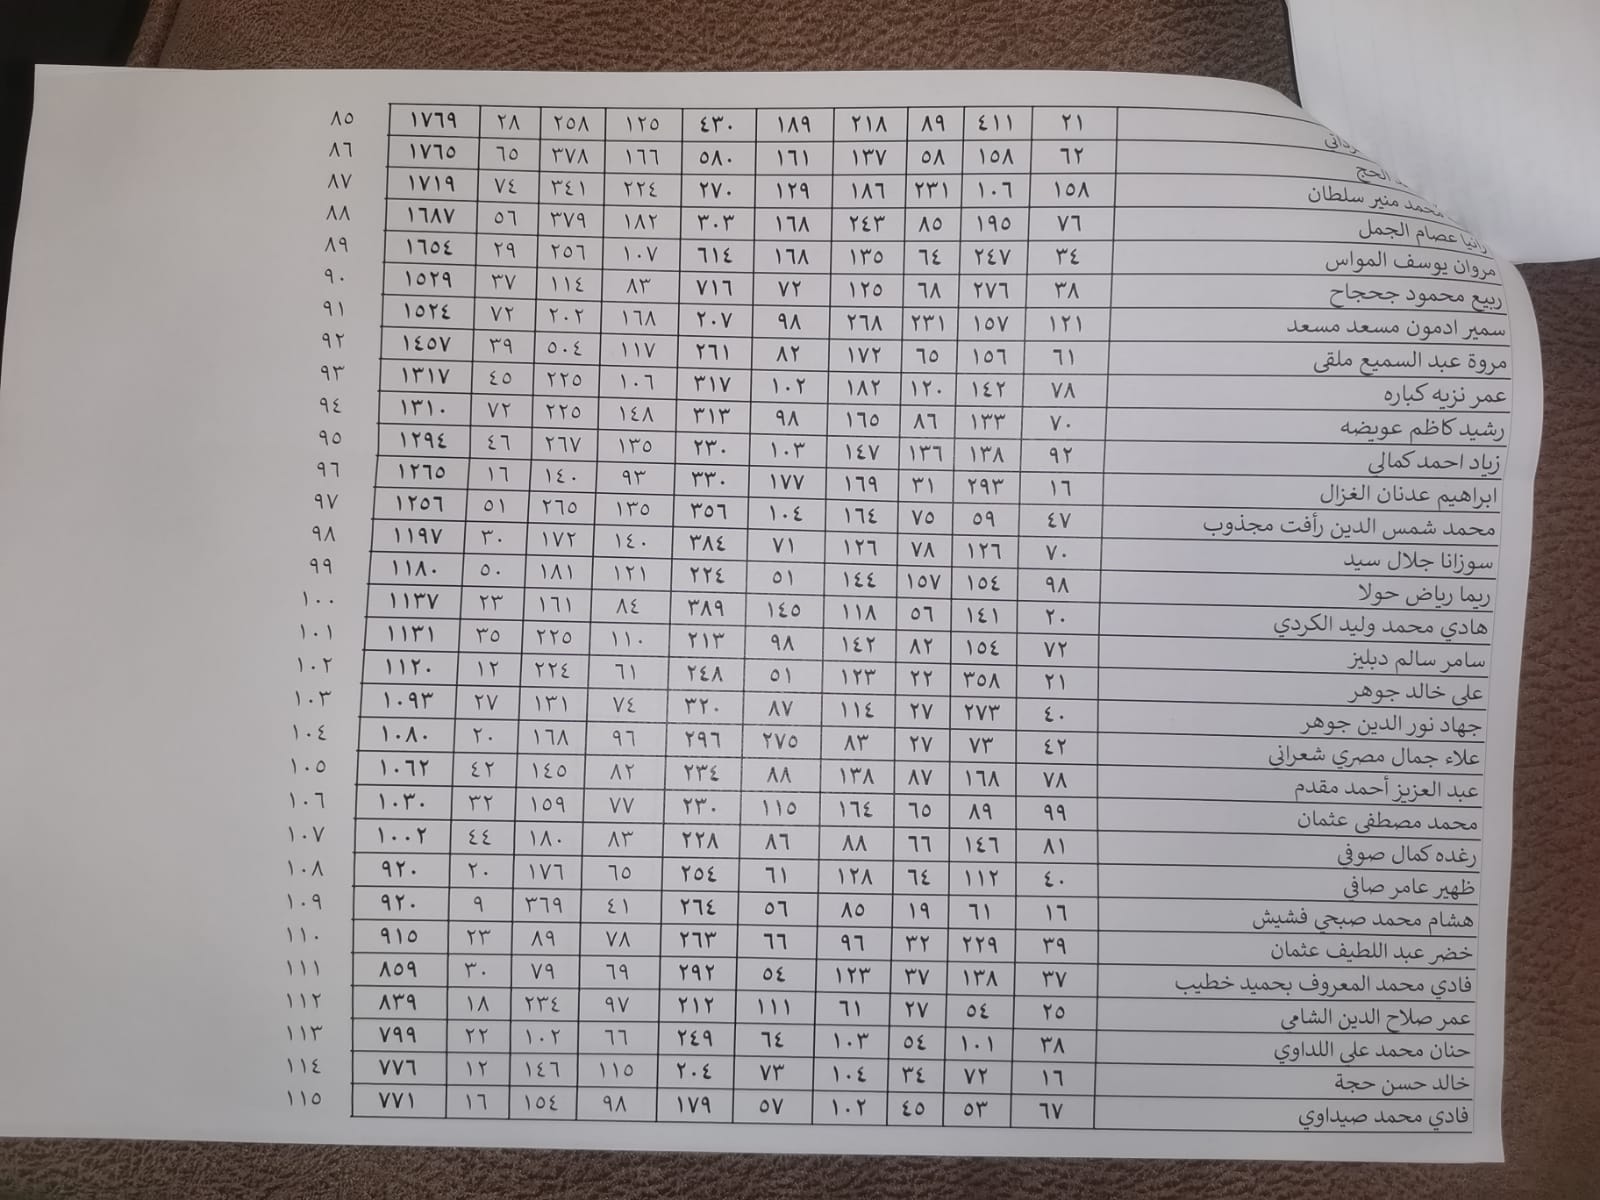 ٢١ ٤١١ ٨٩ ٢١٨ ١٨٩ ٤٣٠ ١٢٥ ٢٥٨ ٢٨ ١٧٦٩ ٨٥
الحج ٦٢ ١٥٨ ٥٨ ١٣٧ ١٦١ ٥٨٠ ١٦٦ ٣٧٨ ٦٥ ١٧٦٥ ٨٦
محمد منير سلطان ١٥٨ ١٠٦ ٢٣١ ١٨٦ ١٢٩ ٢٧٠ ٢٢٤ ٣٤١ ٧٤ ١٧١٩ ٨٧
رانيا عصام الجمل ٧٦ ١٩٥ ٨٥ ٢٤٣ ١٦٨ ٣٠٣ ١٨٢ ٣٧٩ ٥٦ ١٦٨٧ ٨٨
مروان يوسف المواس ٣٤ ٢٤٧ ٦٤ ١٣٥ ١٦٨ ٦١٤ ١٠٧ ٢٥٦ ٢٩ ١٦٥٤ ٨٩
ربيع محمود جحجاح ٣٨ ٢٧٦ ٦٨ ١٢٥ ٧٢ ٧١٦ ٨٣ ١١٤ ٣٧ ١٥٢٩ ٩٠
سمير ادمون مسعد مسعد ١٢١ ١٥٧ ٢٣١ ٢٦٨ ٩٨ ٢٠٧ ١٦٨ ٢٠٢ ٧٢ ١٥٢٤ ٩١
مروة عبد السميع ملقى ٦١ ١٥٦ ٦٥ ١٧٢ ٨٢ ٢٦١ ١١٧ ٥٠٤ ٣٩ ١٤٥٧ ٩٢
عمر نزيه كباره ٧٨ ١٤٢ ١٢٠ ١٨٢ ١٠٢ ٣١٧ ١٠٦ ٢٢٥ ٤٥ ١٣١٧ ٩٣
رشيد كاظم عويضه ٧٠ ١٣٣ ٨٦ ١٦٥ ٩٨ ٣١٣ ١٤٨ ٢٢٥ ٧٢ ١٣١٠ ٩٤
زياد احمد كمالي ٩٢ ١٣٨ ١٣٦ ١٤٧ ١٠٣ ٢٣٠ ١٣٥ ٢٦٧ ٤٦ ١٢٩٤ ٩٥
ابراهيم عدنان الغزال ١٦ ٢٩٣ ٣١ ١٦٩ ١٧٧ ٣٣٠ ٩٣ ١٤٠ ١٦ ١٢٦٥ ٩٦
محمد شمس الدين رأفت مجذوب ٤٧ ٥٩ ٧٥ ١٦٤ ١٠٤ ٣٥٦ ١٣٥ ٢٦٥ ٥١ ١٢٥٦ ٩٧
سوزانا جلال سيد ٧٠ ١٢٦ ٧٨ ١٢٦ ٧١ ٣٨٤ ١٤٠ ١٧٢ ٣٠ ١١٩٧ ٩٨
ريما رياض حولا ٩٨ ١٥٤ ١٥٧ ١٤٤ ٥١ ٢٢٤ ١٢١ ١٨١ ٥٠ ١١٨٠ ٩٩
هادي محمد وليد الكردي ٢٠ ١٤١ ٥٦ ١١٨ ١٤٥ ٣٨٩ ٨٤ ١٦١ ٢٣ ١١٣٧ ١٠٠
سامر سالم دبليز ٧٢ ١٥٤ ٨٢ ١٤٢ ٩٨ ٢١٣ ١١٠ ٢٢٥ ٣٥ ١١٣١ ١٠١
علي خالد جوهر ٢١ ٣٥٨ ٢٢ ١٢٣ ٥١ ٢٤٨ ٦١ ٢٢٤ ١٢ ١١٢٠ ١٠٢
جهاد نور الدين جوهر ٤٠ ٢٧٣ ٢٧ ١١٤ ٨٧ ٣٢٠ ٧٤ ١٣١ ٢٧ ١٠٩٣ ١٠٣
علاء جمال مصري شعراني ٤٢ ٧٣ ٢٧ ٨٣ ٢٧٥ ٢٩٦ ٩٦ ١٦٨ ٢٠ ١٠٨٠ ١٠٤
عبد العزيز أحمد مقدم ٧٨ ١٦٨ ٨٧ ١٣٨ ٨٨ ٢٣٤ ٨٢ ١٤٥ ٤٢ ١٠٦٢ ١٠٥
محمد مصطفى عثمان ٩٩ ٨٩ ٦٥ ١٦٤ ١١٥ ٢٣٠ ٧٧ ١٥٩ ٣٢ ١٠٣٠ ١٠٦
رغده كمال صوفي ٨١ ١٤٦ ٦٦ ٨٨ ٨٦ ٢٢٨ ٨٣ ١٨٠ ٤٤ ١٠٠٢ ١٠٧
ظهير عامر صافي ٤٠ ١١٢ ٦٤ ١٢٨ ٦١ ٢٥٤ ٦٥ ١٧٦ ٢٠ ٩٢٠ ١٠٨
هشام محمد صبحي فشيش ١٦ ٦١ ١٩ ٨٥ ٥٦ ٢٦٤ ٤١ ٣٦٩ ٩ ٩٢٠ ١٠٩
خضر عبد اللطيف عثمان ٣٩ ٢٢٩ ٣٢ ٩٦ ٦٦ ٢٦٣ ٧٨ ٨٩ ٢٣ ٩١٥ ١١٠
فادي محمد المعروف بحميد خطيب ٣٧ ١٣٨ ٣٧ ١٢٣ ٥٤ ٢٩٢ ٦٩ ٧٩ ٣٠ ٨٥٩ ١١١
عمر صلاح الدين الشامي ٢٥ ٥٤ ٢٧ ٦١ ١١١ ٢١٢ ٩٧ ٢٣٤ ١٨ ٨٣٩ ١١٢
حنان محمد علي اللداوي ٣٨ ١٠١ ٥٤ ١٠٣ ٦٤ ٢٤٩ ٦٦ ١٠٢ ٢٢ ٧٩٩ ١١٣
خالد حسن حجة ١٦ ٧٢ ٣٤ ١٠٤ ٧٣ ٢٠٤ ١١٥ ١٤٦ ١٢ ٧٧٦ ١١٤
فادي محمد صيداوي ٦٧ ٥٣ ٤٥ ١٠٢ ٥٧ ١٧٩ ٩٨ ١٥٤ ١٦ ٧٧١ ١١٥